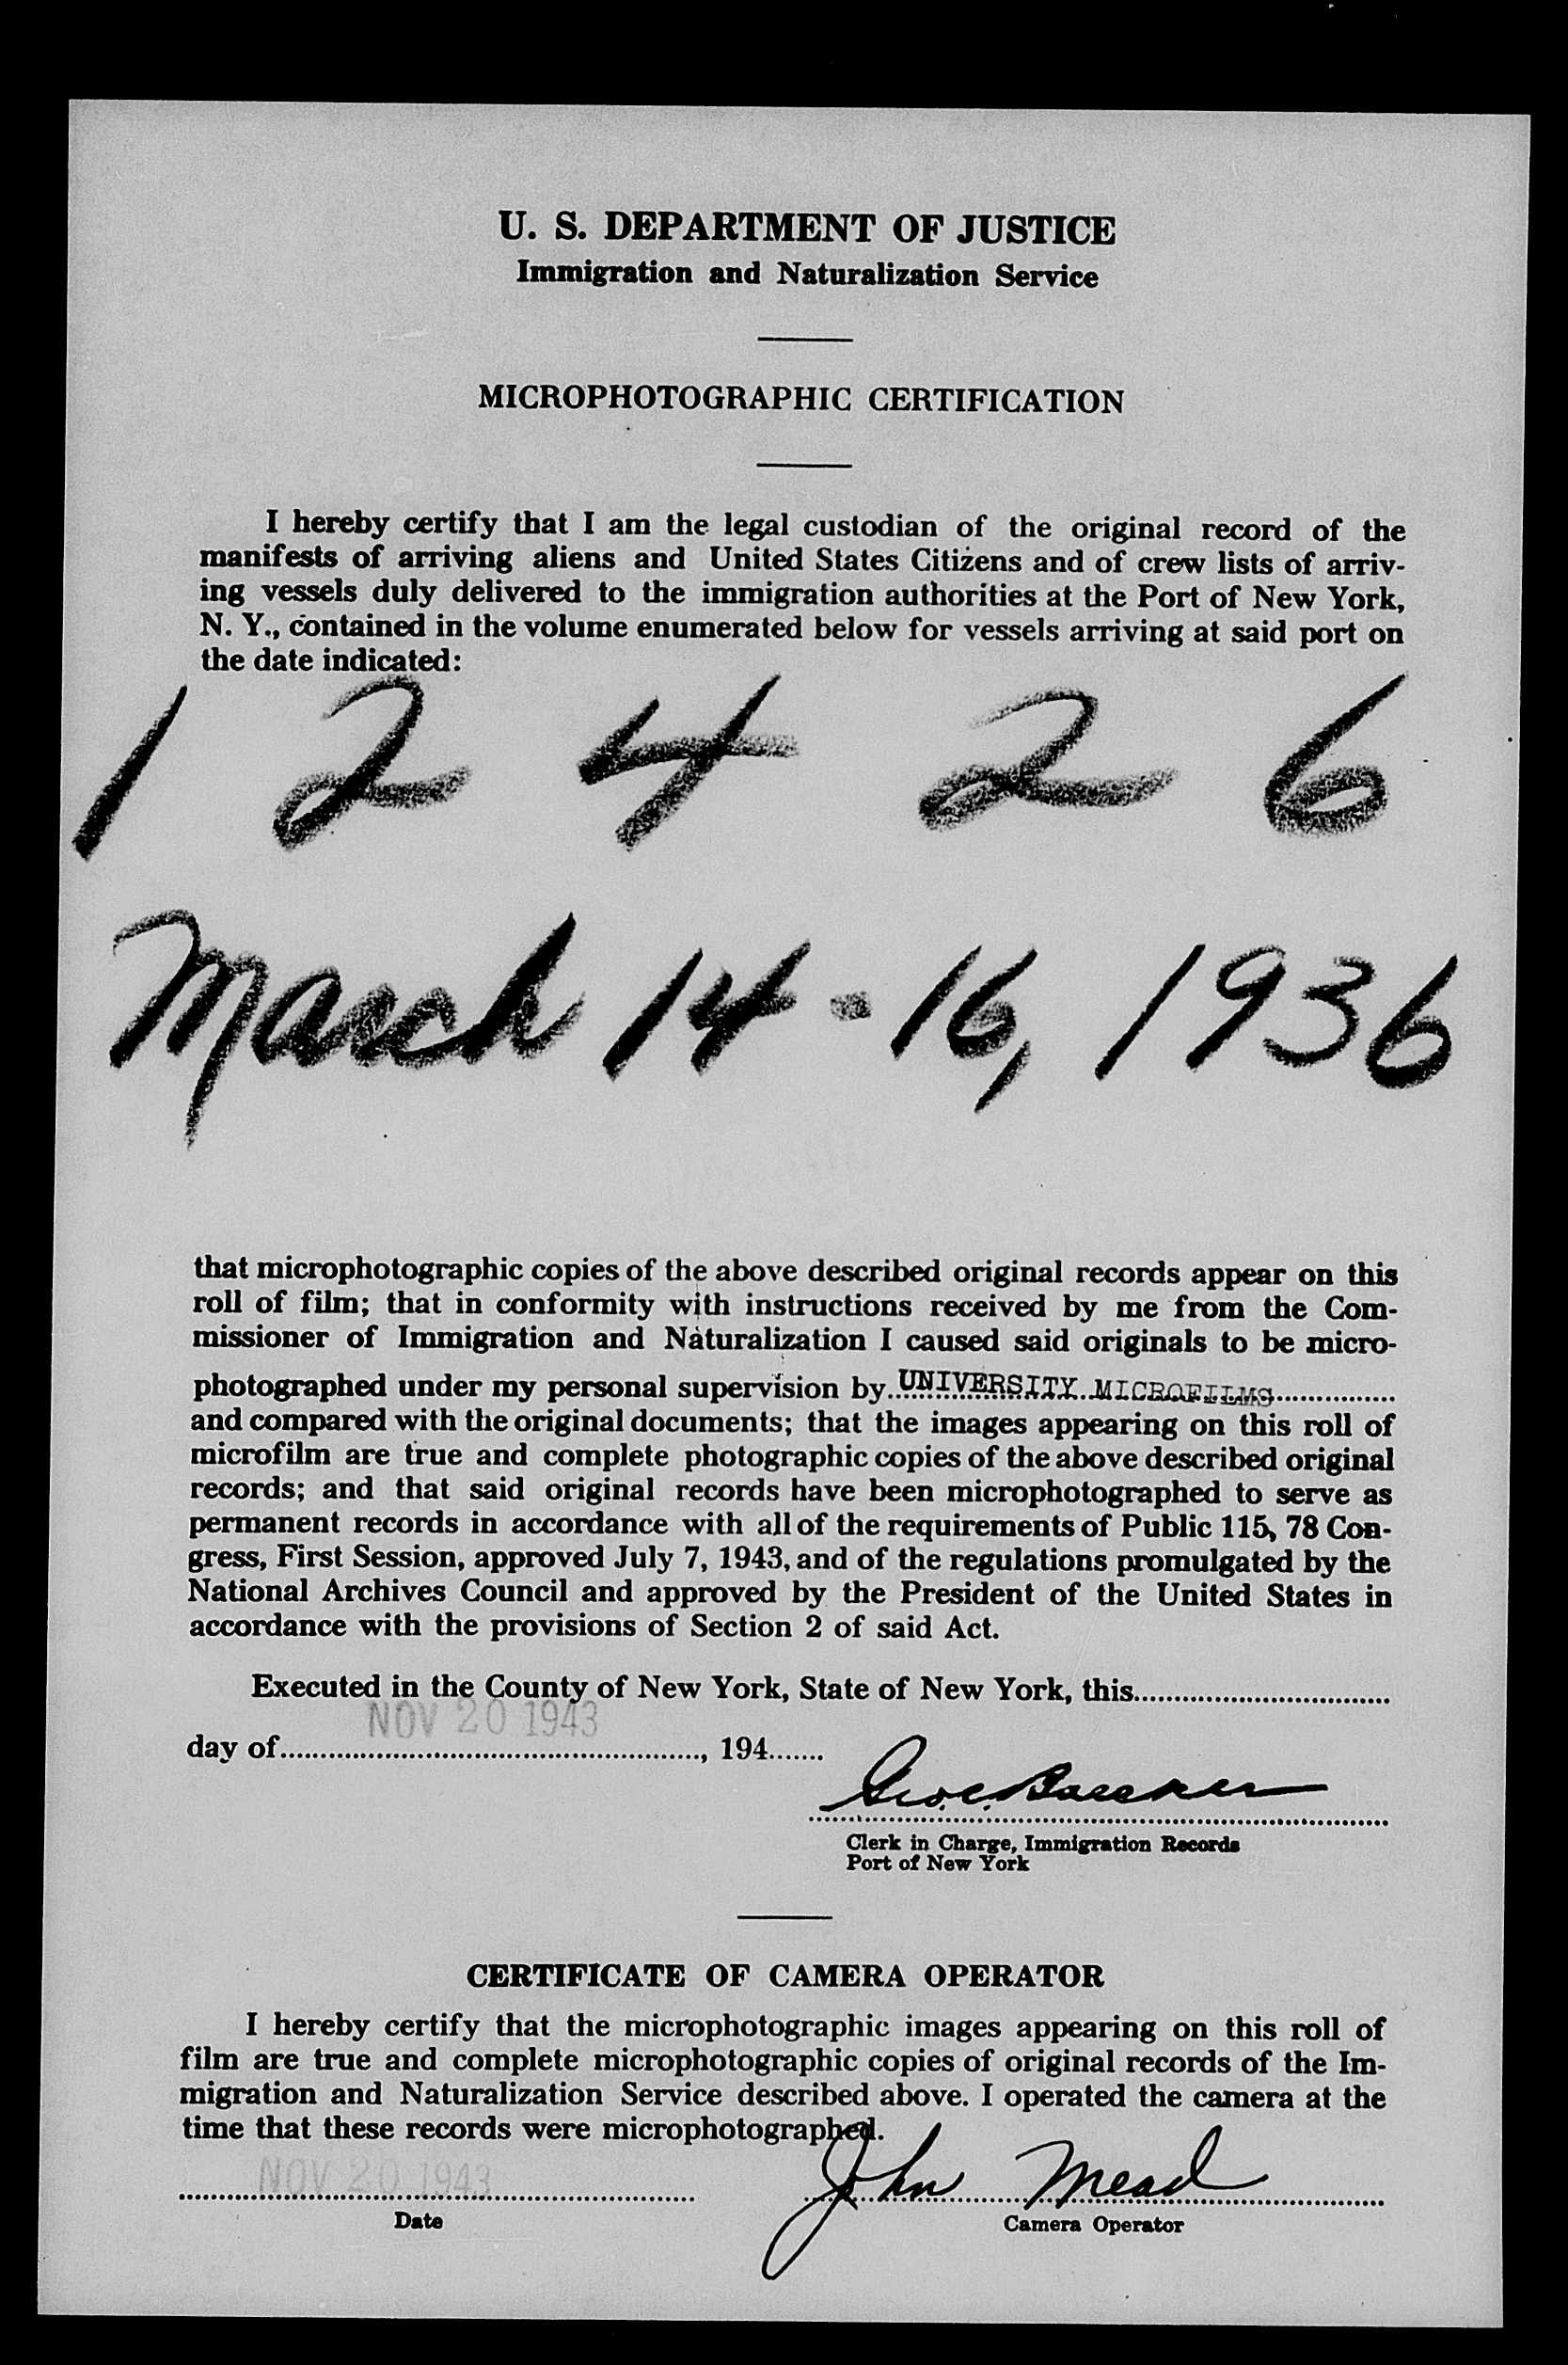 U. S. DEPARTMENT OF JUSTICE
Immigration and Naturalization Service
MICROPHOTOGRAPHIC CERTIFICATION
I hereby certify that I am the legal custodian of the original record of the
manifests of arriving aliens and United States Citizens and of crew lists of arriv-
ing vessels duly delivered to the immigration authorities at the Port of New York,
N. Y., contained in the volume enumerated below for vessels arriving at said port on
the date indicated:
1 2 4 2 6
March 14 - 16, 1936
that microphotographic copies of the above described original records appear on this
roll of film; that in conformity with instructions received by me from the Com-
missioner of Immigration and Naturalization I caused said originals to be micro-
photographed under my personal supervision by UNIVERSITY MICROFILMS
and compared with the original documents; that the images appearing on this roll of
microfilm are true and complete photographic copies of the above described original
records; and that said original records have been microphotographed to serve as
permanent records in accordance with all of the requirements of Public 115, 78 Con-
gress, First Session, approved July 7, 1943, and of the regulations promulgated by the
National Archives Council and approved by the President of the United States in
accordance with the provisions of Section 2 of said Act.
Executed in the County of New York, State of New York, this
NOV 20 1943
day of, 194
Geo. C.
Clerk in Charge, Immigration Records
Port of New York
CERTIFICATE OF CAMERA OPERATOR
I hereby certify that the microphotographic images appearing on this roll of
film are true and complete microphotographic copies of original records of the Im-
migration and Naturalization Service described above. I operated the camera at the
time that these records were microphotographed.
NOV 20 1943 John Mead
Date Camera Operator